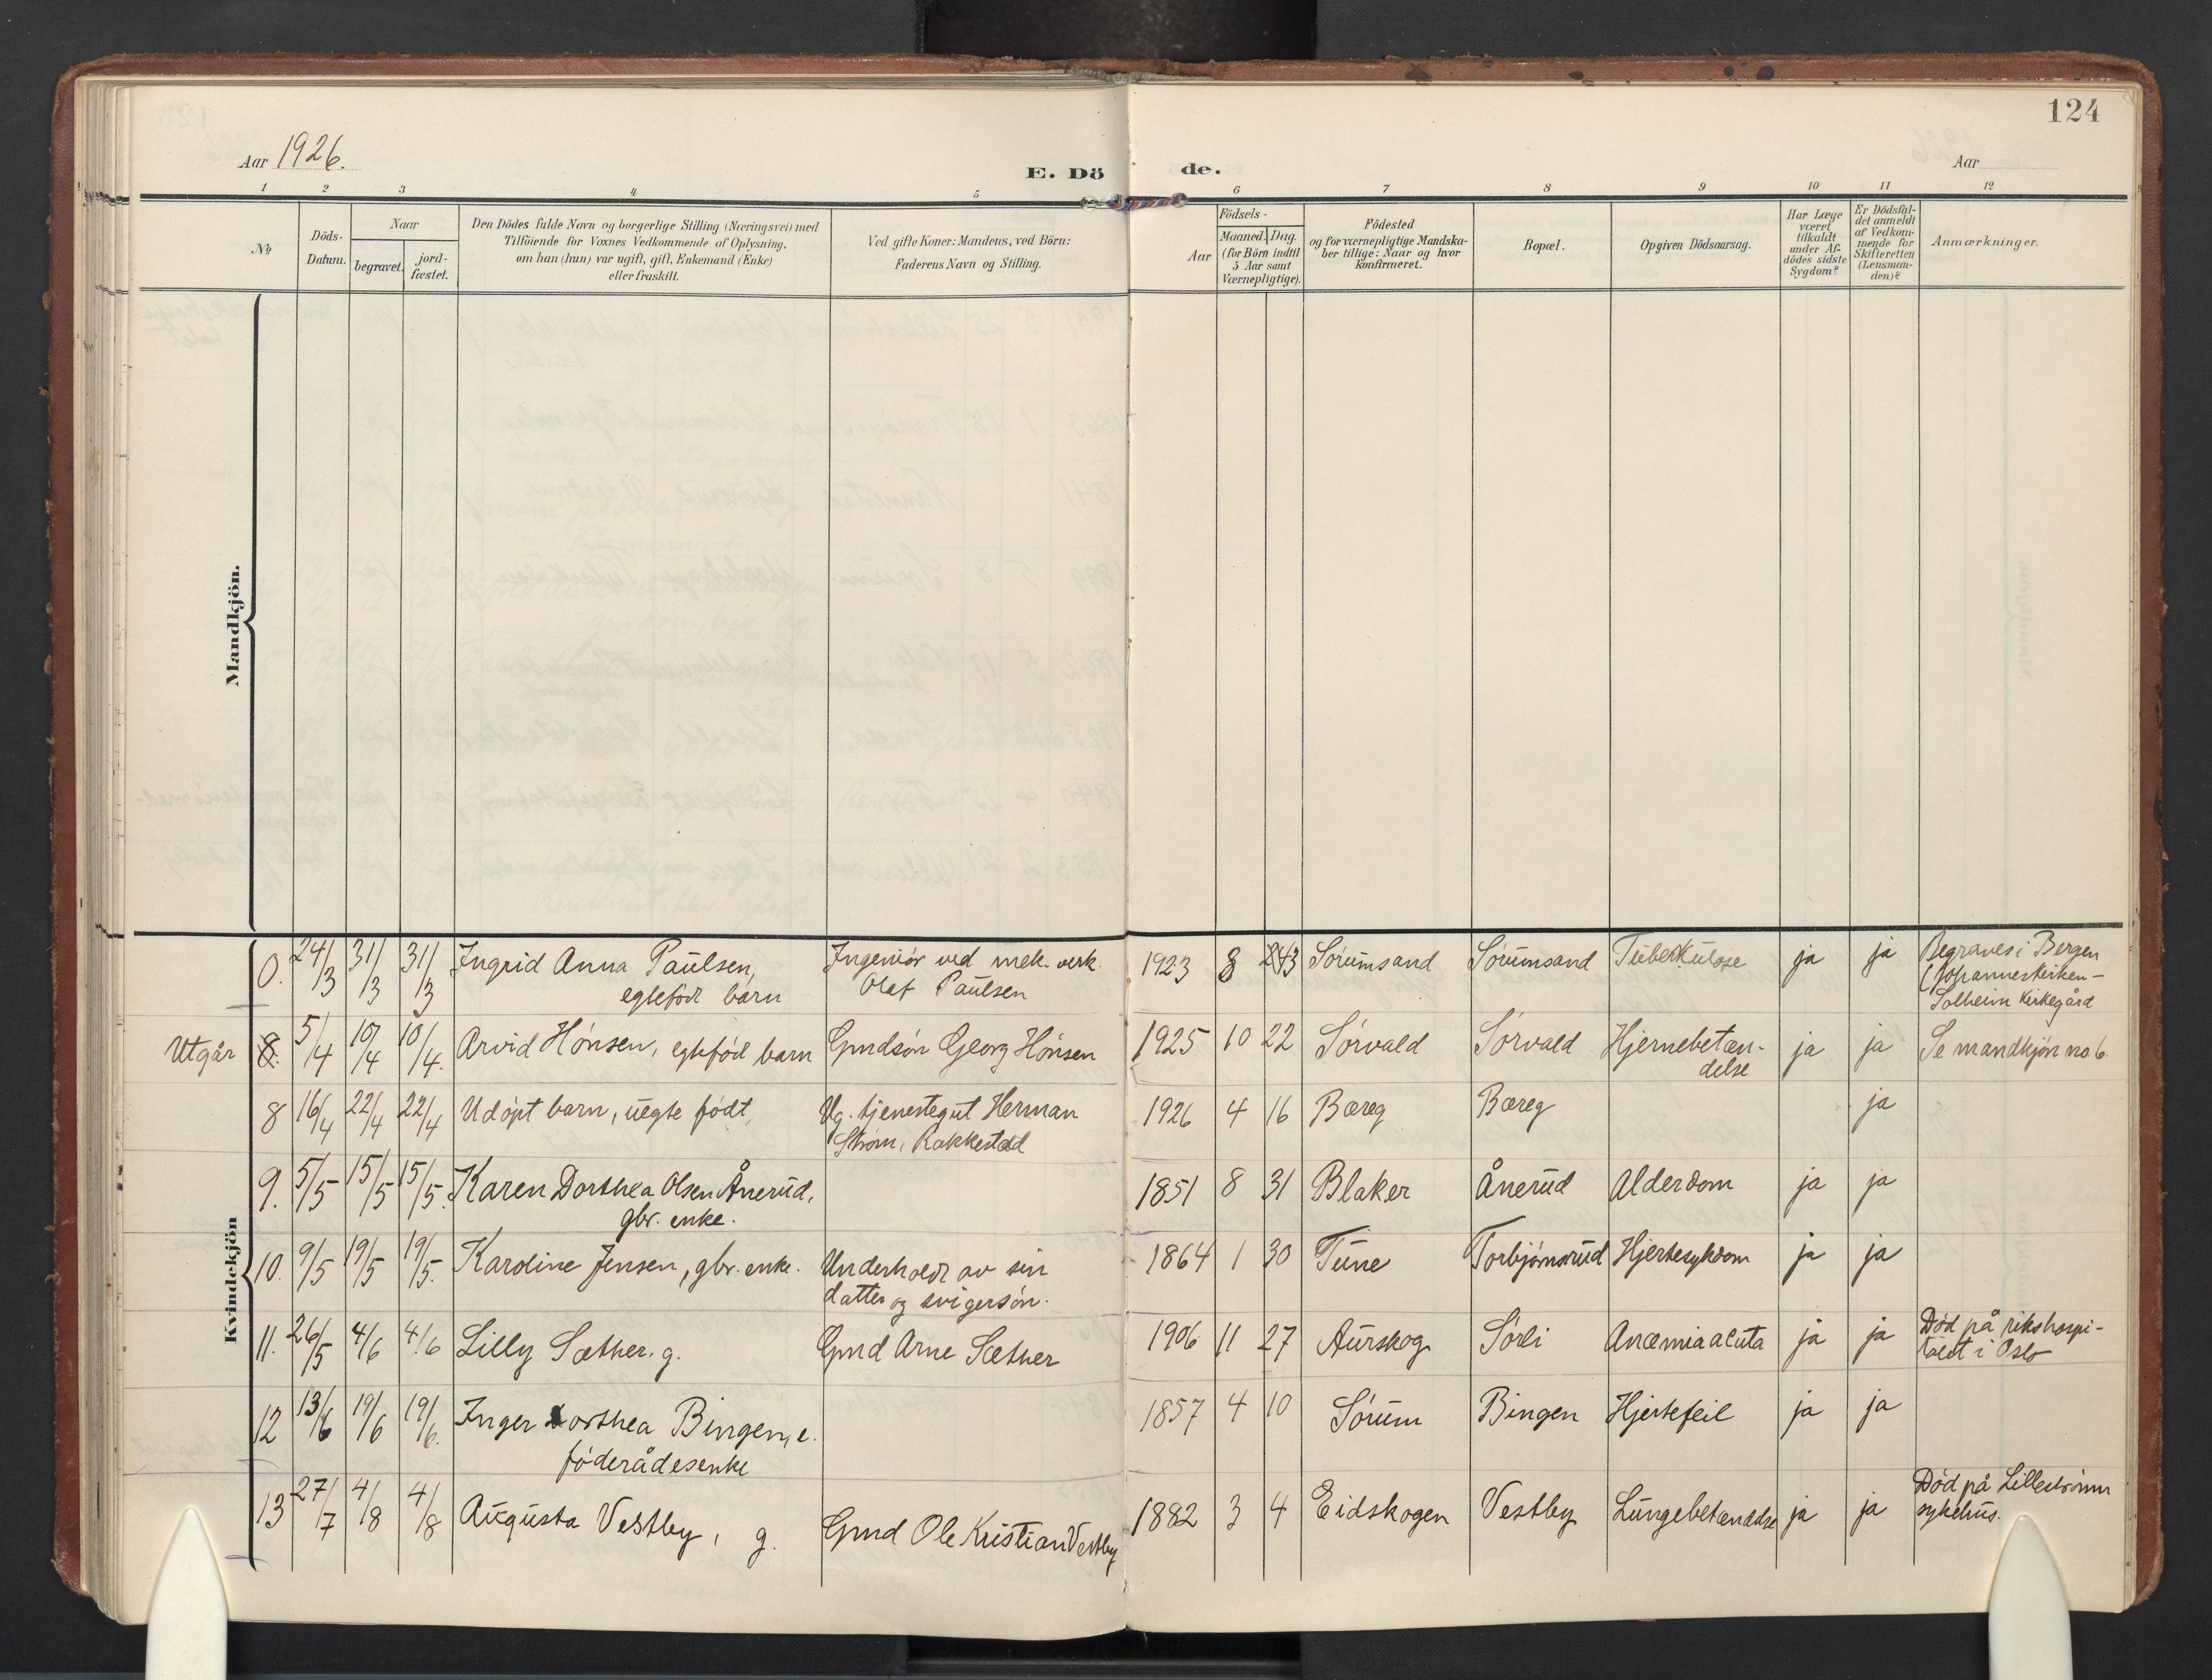 124
Aar 1926.
E. Dö
de.
Aar
1 2 3 4 5 6 7 8 9 10 11 12
No
Döds-
Datum.
Naar
begravet.
jord-
fæstet.
Den Dödes fulde Navn og borgerlige Stilling (Næringsvei) med
Tilföiende for Voxnes Vedkommende af Oplysning,
om han (hun) var ugift, gift, Enkemand (Enke)
eller fraskilt.
Ved gifte Koner: Mandens, ved Börn:
Faderens Navn og Stilling.
Födsels-
Aar
Maaned. Dag.
(for Börn indtil
5 Aar samt
Værnepligtige).
Födested
og for værnepligtige Mandska-
ber tillige: Naar og hvor
Konfirmeret.
Bopæl.
Opgiven Dödsaarsag.
Har Læge
været
tilkaldt
under Af-
dödes sidste
Sygdom?
Er Dödsfal-
det anmeldt
af Vedkom-
mende for
Skifteretten
(Lensman-
den)?
Anmærkninger.
Mandkjön.
Kvindekjön
0. 24/3 31/3 31/3 Ingrid Anna Paulsen,
egtefödt barn
Ingeniör ved mek. verk.
Olaf Paulsen
1923 8 13 Sörumsand Sörumsand Tuberkulose ja ja
Begraves i Bergen
(Johanneskirken-
Solheim kirkegård
Utgår 8. 5/4 10/4 10/4. Arvid Hönsen, egtefödt barn Gmdsön Georg Hönsen 1925 10 22 Sörvald Sörvald Hjernebetæn-
delse
ja ja Se mandkjön no 6.
8 16/4 22/4 22/4 Udöpt barn, uegte födt, Ug. tjenestegut Herman
Ström, Rakkestad
1926 4 16 Bæreg Bæreg ja
9. 5/5 15/5 15/5. Karen Dorthea Olsen Ånerud,
gbr. enke.
1851 8 31 Blaker Ånerud Alderdom ja ja
10. 9/5 19/5 19/5. Karoline Jensen, gbr. enke. Underholdt av sin
datter og svigersön.
1864 1 30 Tune Torbjörnsrud Hjertesykdom ja ja
11. 26/5 4/6 4/6 Lilly Sæther. g. Gmd Arne Sæther 1906 11 27 Aurskog Sörli Anæmia acuta ja ja
Död på rikshospi-
talet i Oslo
12 13/6 19/6 19/6. Inger Dorthea Bingen, e.
föderådesenke
1857 4 10 Sörum Bingen Hjertefeil ja ja
13 27/7 4/8 4/8 Augusta Vestby, g. Gmd Ole Kristian Vestby 1882 3 4 Eidskogen Vestby Lungebetændelse ja ja
Död på Lilleström
sykehus.